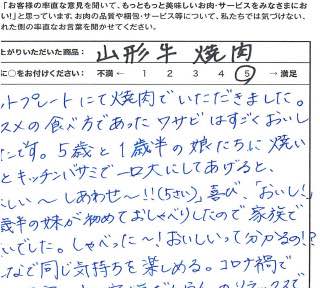 「お客様の率直な意見を聞いて、もっともっと美味しいお肉・サービスをみなさまにお
い!」と思っています。お肉の品質や梱包・サービス等について、私たちでは気づけない、
れた側の率直なお言葉を聞かせてください。
上がりいただいた商品: 山形牛 焼肉
に○をお付けください: 不満 ← 1 2 3 4 5 → 満足
ットプレートにて焼肉でいただきました。
スメの食べ方であったワサビはすごくおいし
たです。5歳と1歳半の娘たちに焼い
とキッチンバサミで一口大にしてあげると、
しい〜しあわせ〜!!(5さい)」喜び、「おいし!」
歳半の妹が初めておしゃべりしたので家族で
いでした。しゃべった〜!おいしいって分かるの!?
なで同じ気持ちを楽しめる。コロナ禍で